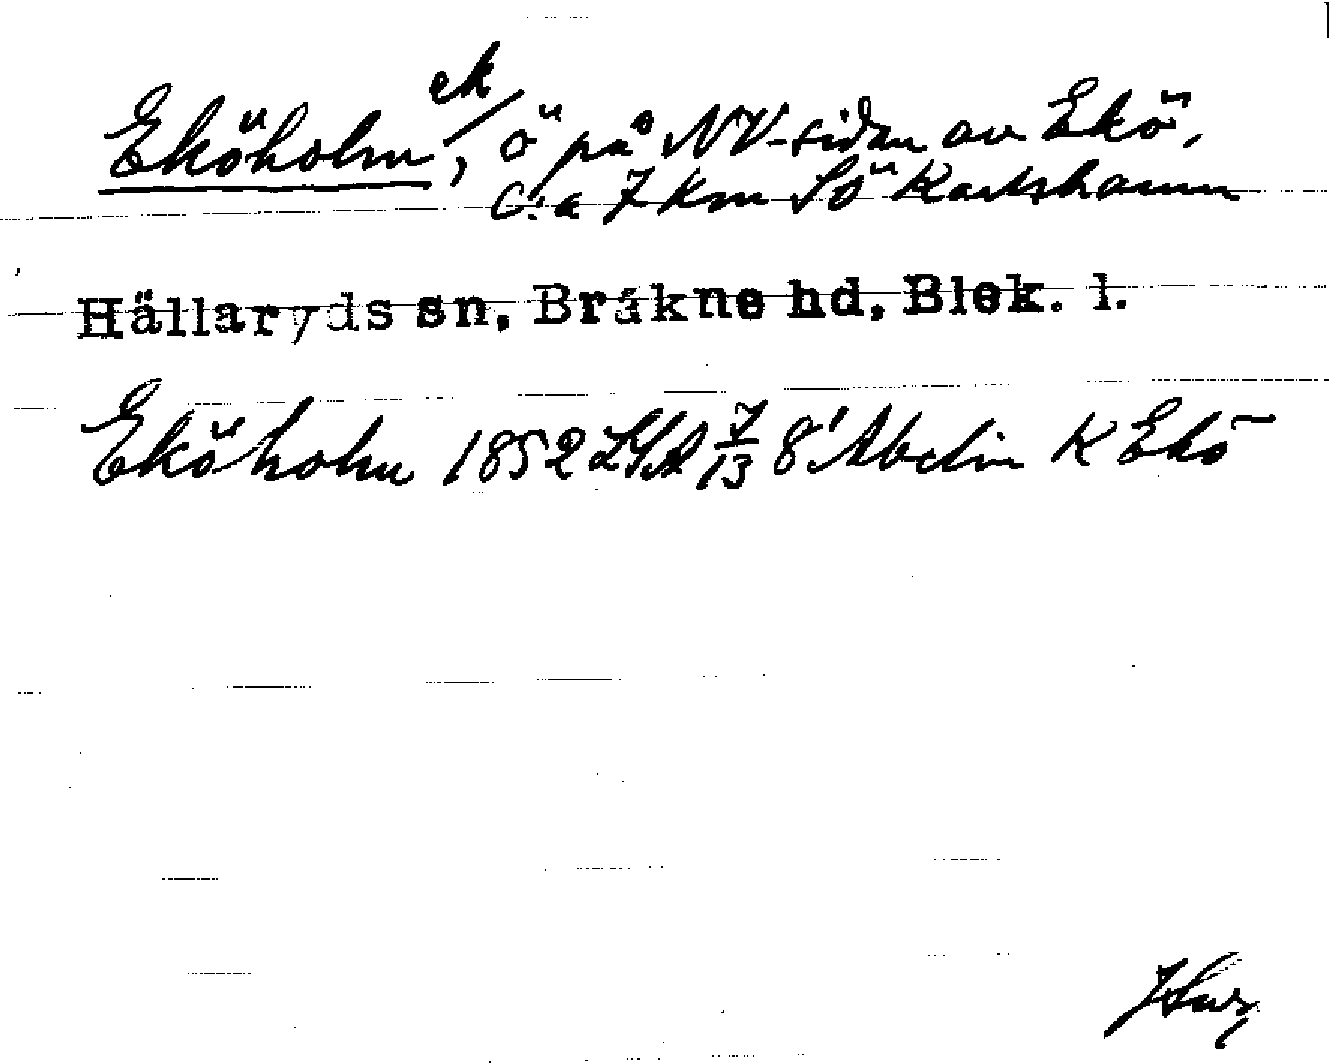 ek
Eköholm, ö på NV-sidan av Ekö,
c:a 7 km SÖ Karlshamn
Hällaryds sn, Bräkne hd, Blek. l.
Eköholm 1852 LSA 7/13 8' Abelin K Ekö